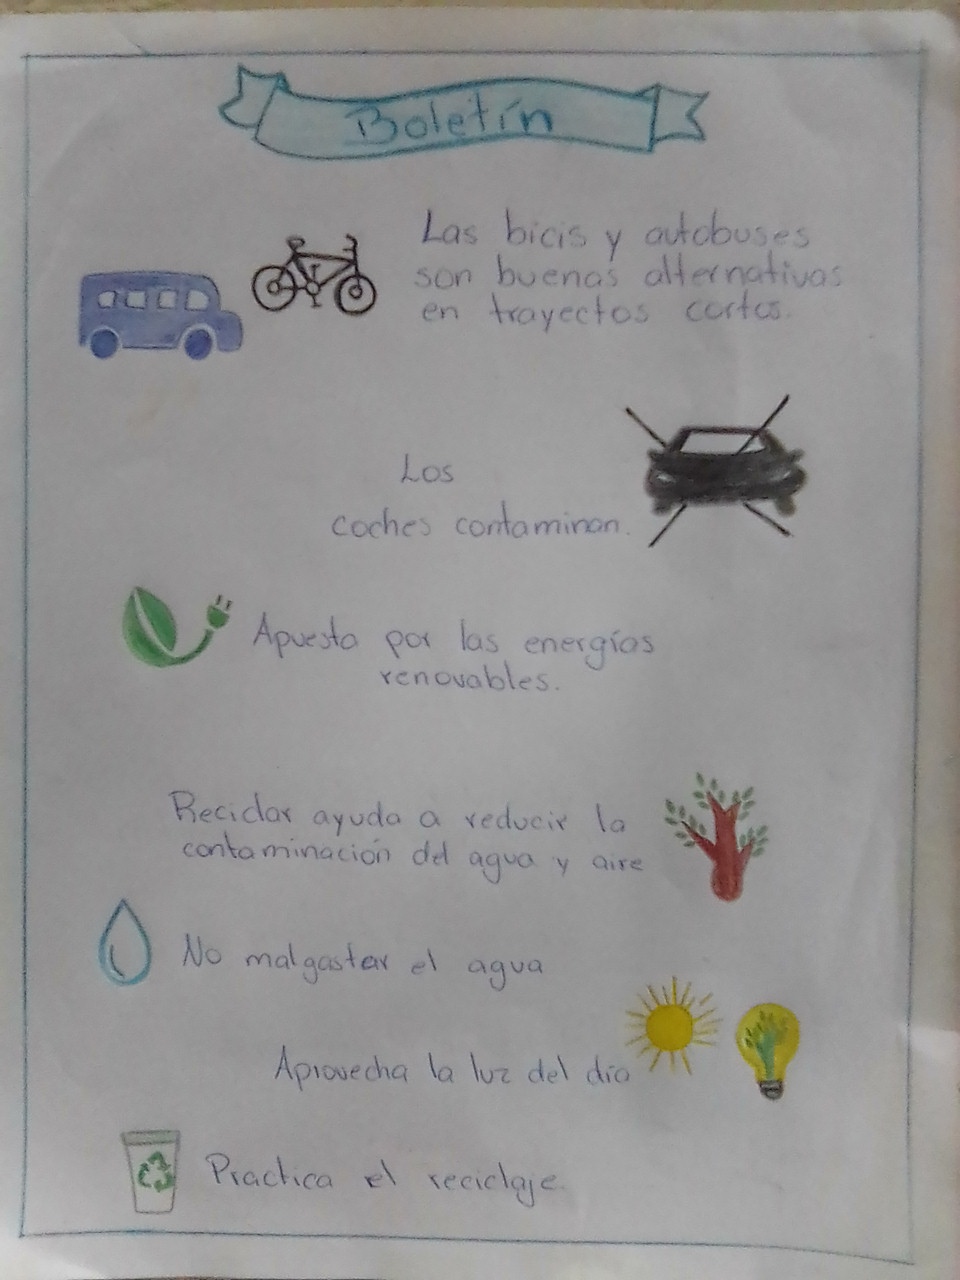 Boletín
Las bicis y autobuses
son buenas alternativas
en trayectos cortos.
Los
coches contaminan.
Apuesta por las energías
renovables.
Reciclar ayuda a reducir la
contaminación del agua y aire
No malgastar el agua
Aprovecha la luz del día
Practica el reciclaje.